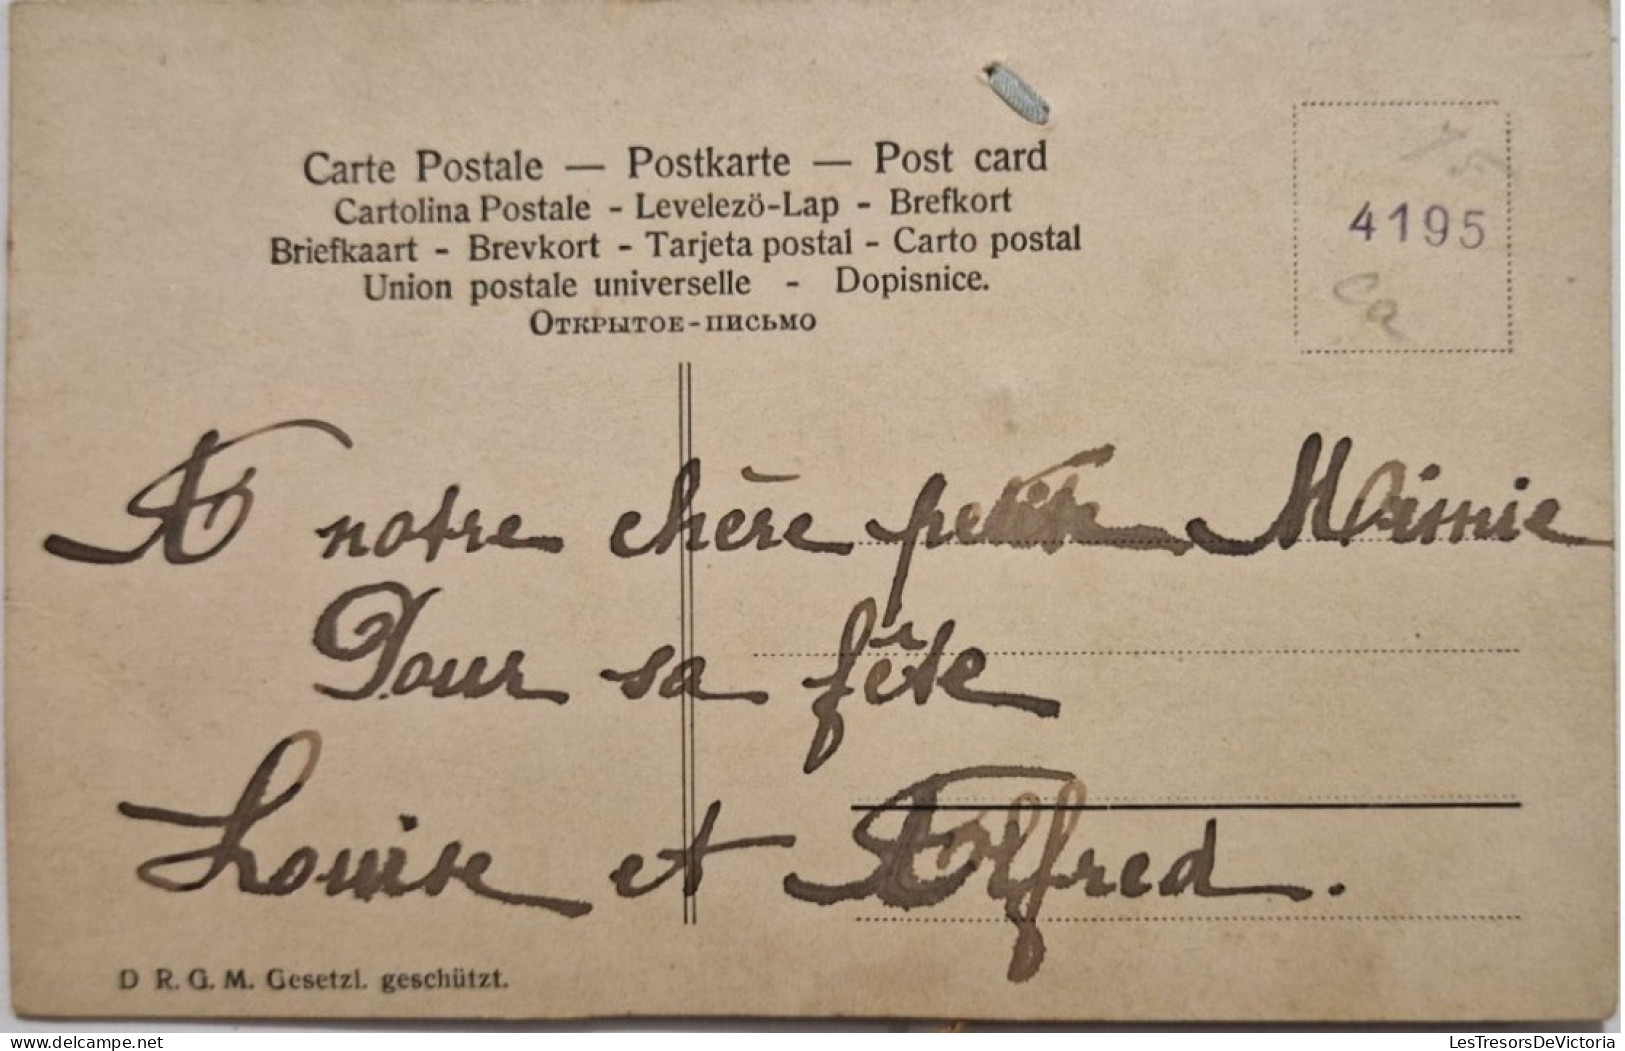 Carte Postale — Postkarte — Post card
Cartolina Postale - Levelezö-Lap - Brefkort
Briefkaart - Brevkort - Tarjeta postal - Carto postal
Union postale universelle - Dopisnice.
Открытое-письмо
4195
Ca
A notre chère petite Mimie
Pour sa fête
Louise et Alfred.
D R. G. M. Gesetzl. geschützt.
delcampe.net
LesTresorsDeVictoria